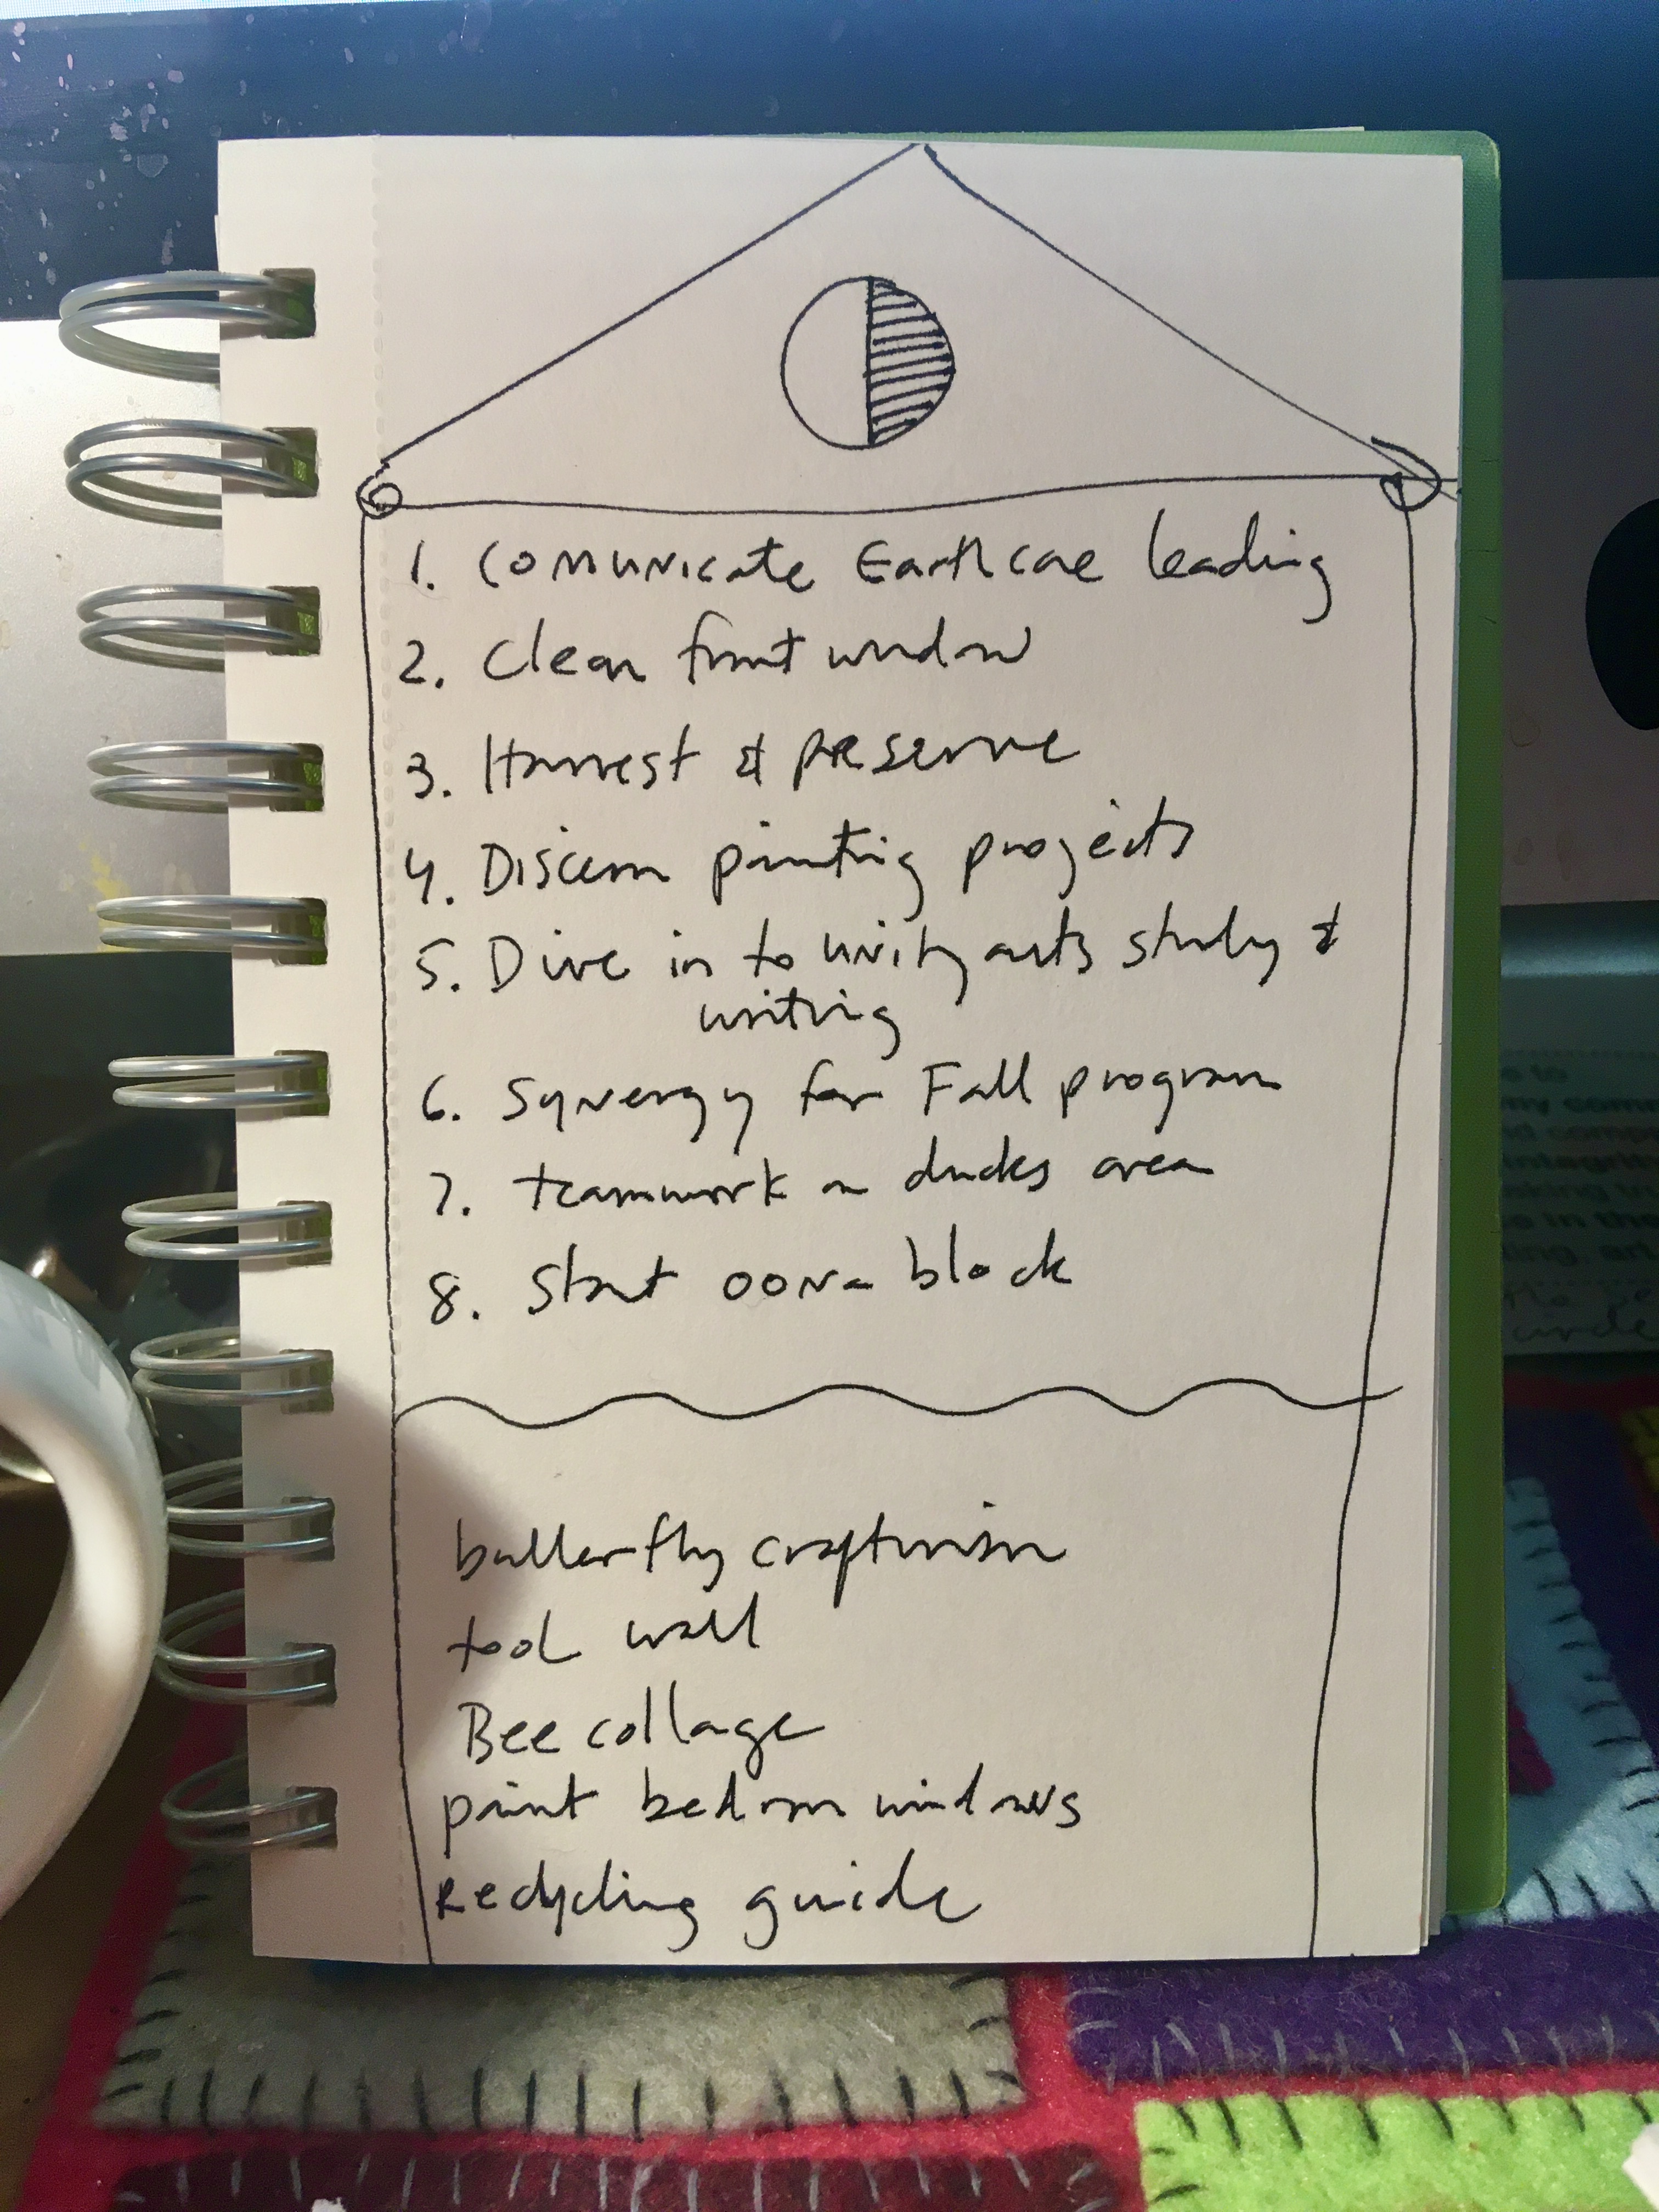 1. Comunicate Earthcare leading
2. Clean front window
3. Harvest & preserve
4. Discern painting projects
5. Dive in to unity arts study &
writing
6. Synergy for Fall program
7. teamwork on ducks area
8. Start oona block
butterfly craftivism
tool wall
Bee collage
paint bedroom windows
Recycling guide